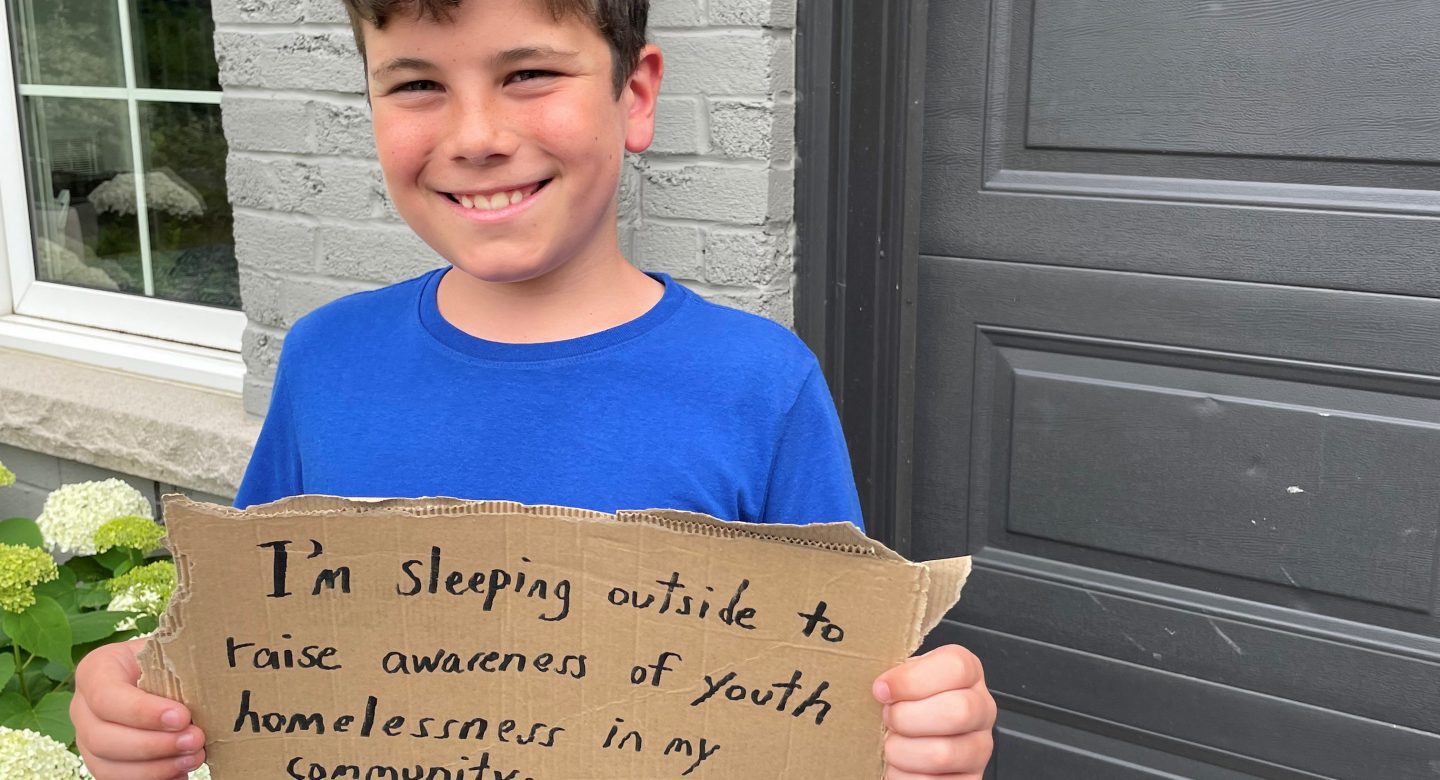 I'm sleeping outside to
raise awareness of youth
homelessness in my
community.